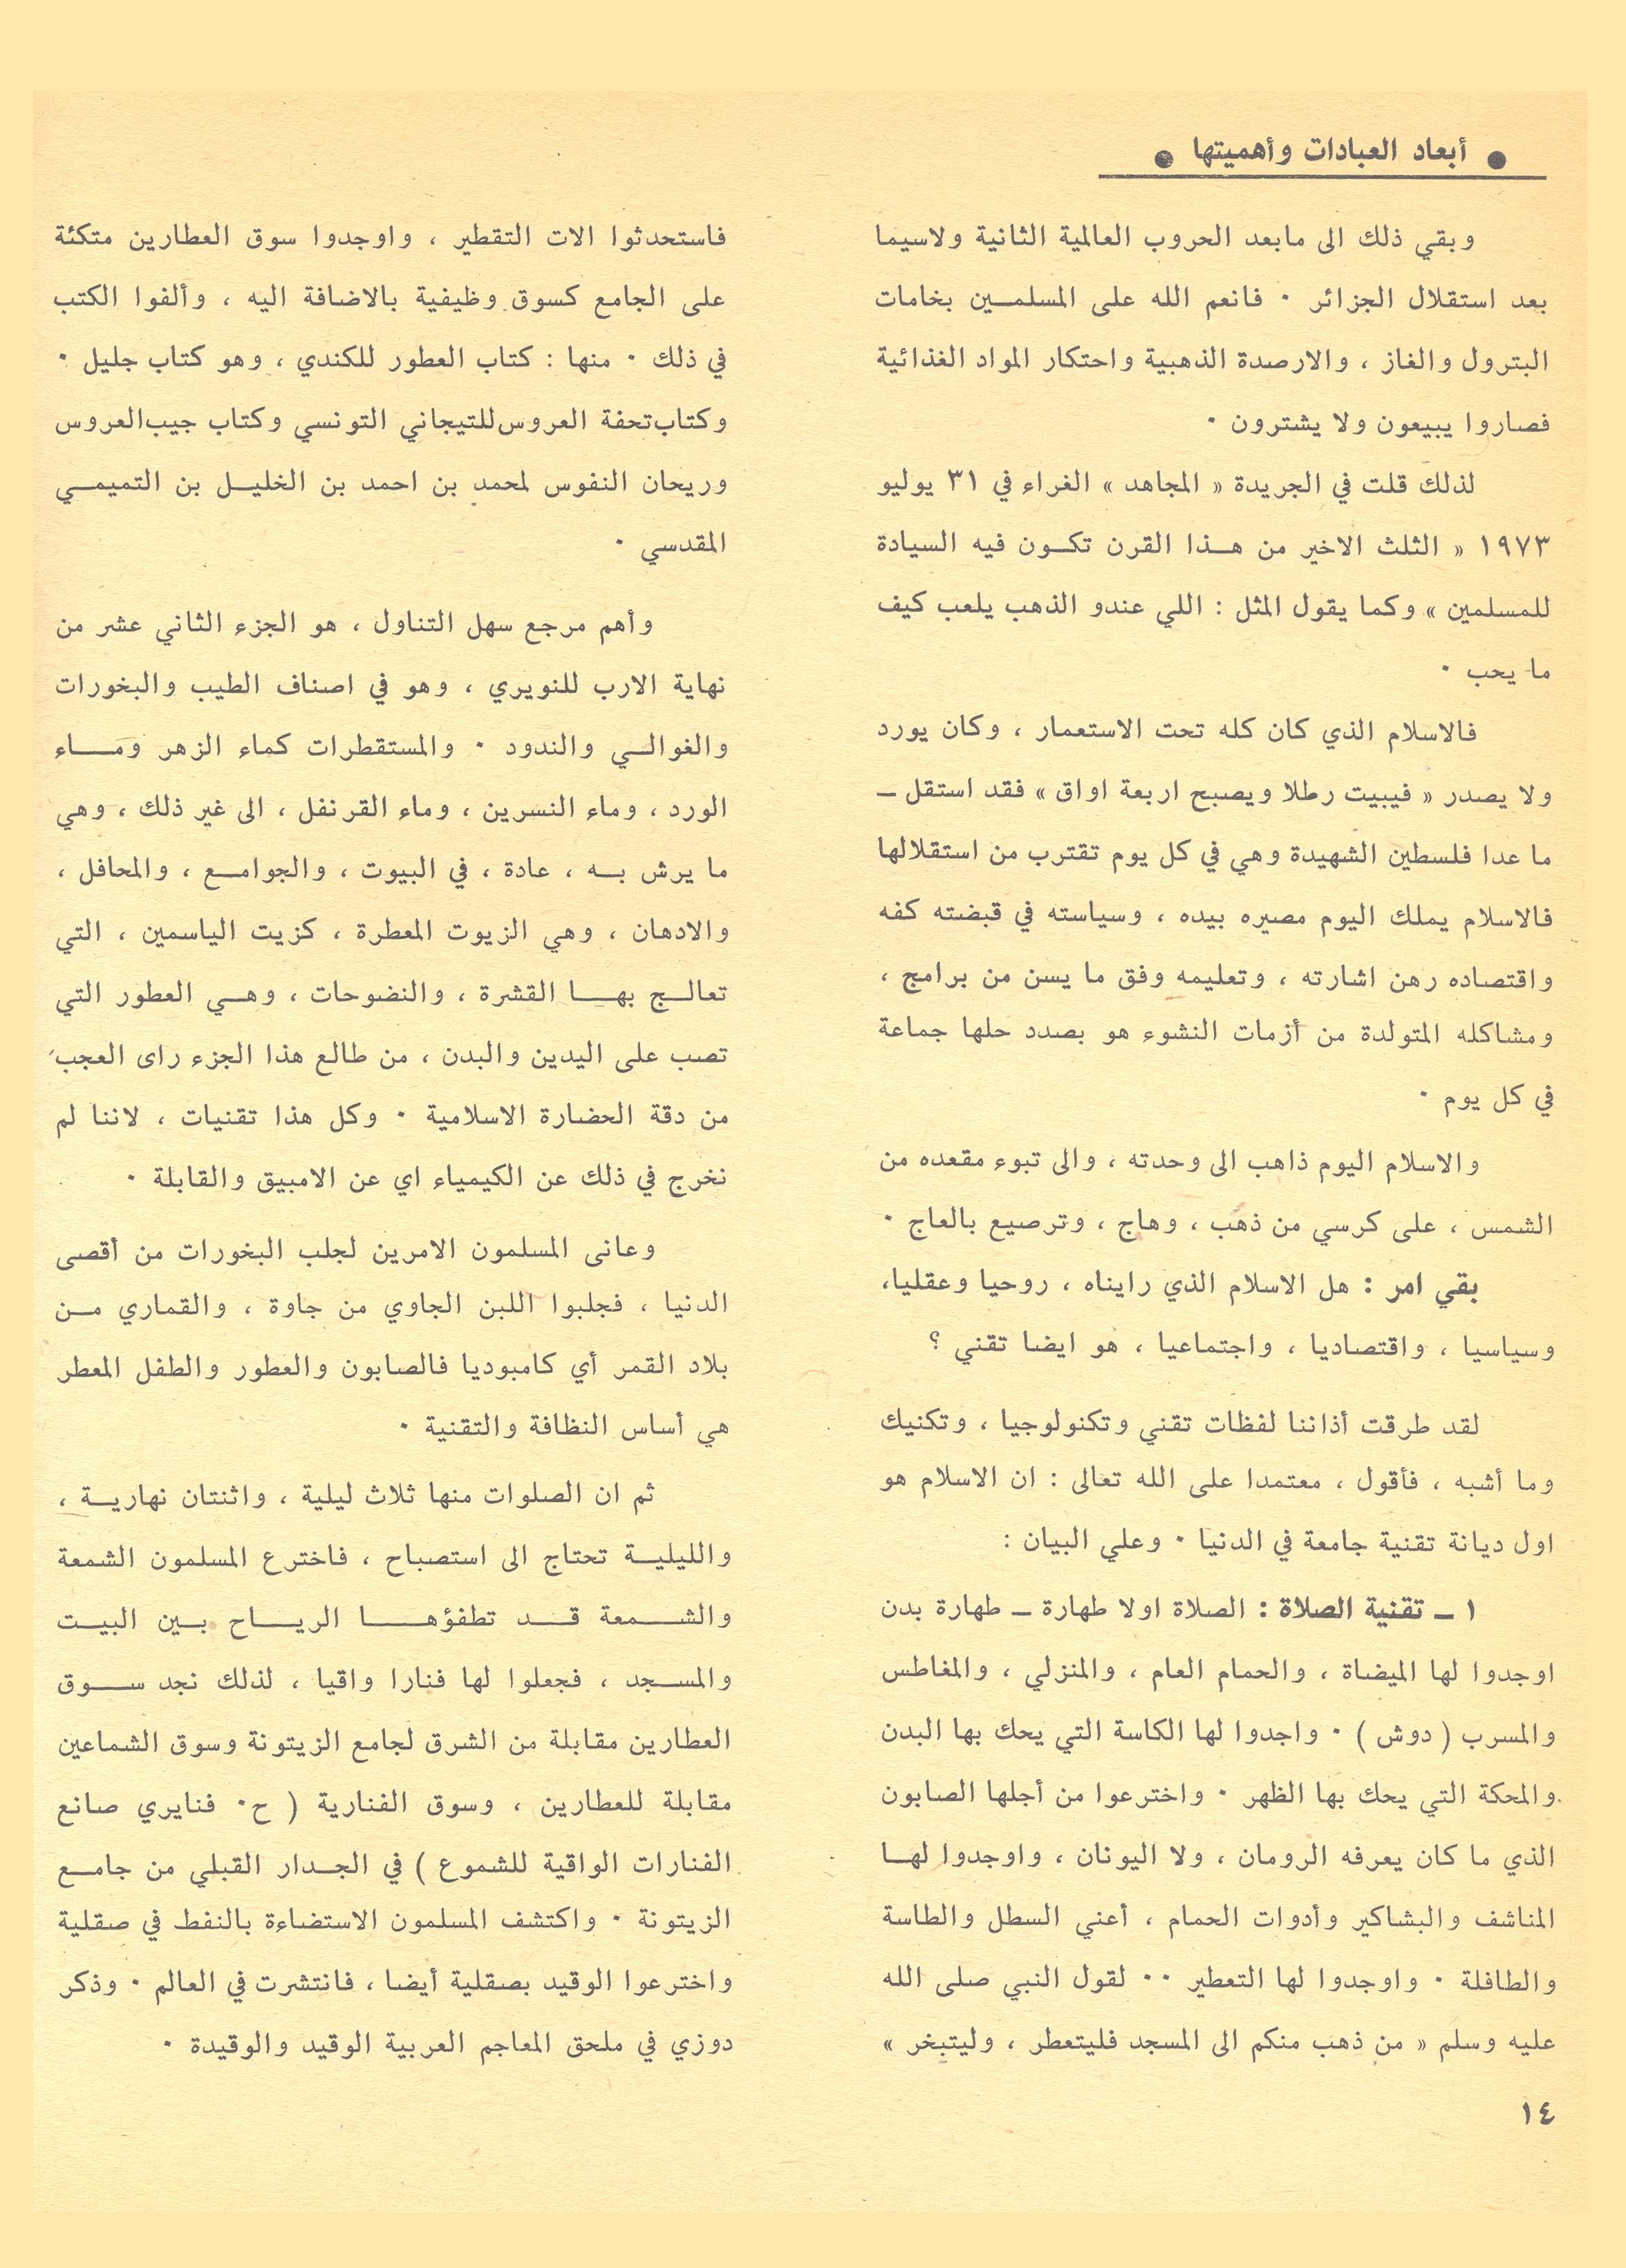 ● أبعاد العبادات وأهميتها ●
وبقي ذلك الى مابعد الحروب العالمية الثانية ولاسيما
بعد استقلال الجزائر ٠ فانعم الله على المسلمـين بخامات
البترول والغاز ، والارصدة الذهبية واحتكار المواد الغذائية
فصاروا يبيعون ولا يشترون ٠
لذلك قلت في الجريدة « المجاهد » الغراء في ٣١ يوليو
١٩٧٣ « الثلث الاخير من هـذا القرن تكـون فيه السيادة
للمسلمين » وكما يقول المثل : اللي عندو الذهب يلعب كيف
ما يحب ٠
فالاسلام الذي كان كله تحت الاستعمار ، وكان يورد
ولا يصدر « فيبيت رطلا ويصبح اربعة اواق » فقد استقل ـ
ما عدا فلسطين الشهيدة وهي في كل يوم تقترب من استقلالها
فالاسلام يملك اليوم مصيره بيده ، وسياسته في قبضته كفه
واقتصاده رهن اشارته ، وتعليمه وفق ما يسن من برامج ،
ومشاكله المتولدة من أزمات النشوء هو بصدد حلها جماعة
في كل يوم ٠
والاسلام اليوم ذاهب الى وحدته ، والى تبوء مقعده من
الشمس ، على كرسي من ذهب ، وهاج ، وترصيع بالعاج ٠
بقي امر : هل الاسلام الذي رايناه ، روحيا وعقليا،
وسياسيا ، واقتصاديا ، واجتماعيا ، هو ايضا تقني ؟
لقد طرقت أذاننا لفظات تقني وتكنولوجيا ، وتكنيك
وما أشبه ، فأقول ، معتمدا على الله تعالى : ان الاسلام هو
اول ديانة تقنية جامعة في الدنيا ٠ وعلي البيان :
١ ـ تقنية الصلاة : الصلاة اولا طهارة ـ طهارة بدن
اوجدوا لها الميضاة ، والحمام العام ، والمنزلي ، والمغاطس
والمسرب ( دوش ) ٠ واجدوا لها الكاسة التي يحك بها البدن
والمحكة التي يحك بها الظهر ٠ واخترعوا من أجلها الصابون
الذي ما كان يعرفه الرومان ، ولا اليونان ، واوجدوا لهـا
المناشف والبشاكير وأدوات الحمام ، أعني السطل والطاسة
والطافلة ٠ واوجدوا لها التعطير ٠٠ لقول النبي صلى الله
عليه وسلم « من ذهب منكم الى المسجد فليتعطر ، وليتبخر »
١٤
فاستحدثوا الات التقطير ، واوجدوا سوق العطارين متكئة
على الجامع كسوق وظيفية بالاضافة اليه ، وألفوا الكتب
في ذلك ٠ منها : كتاب العطور للكندي ، وهو كتاب جليل ٠
وكتاب تحفة العروس للتيجاني التونسي وكتاب جيب العروس
وريحان النفوس لمحمد بن احمد بن الخليـل بن التميمـي
المقدسي ٠
وأهم مرجع سهل التناول ، هو الجزء الثاني عشر من
نهاية الارب للنويري ، وهو في اصناف الطيب والبخورات
والغوالـي والندود ٠ والمستقطرات كماء الزهر ومـاء
الورد ، وماء النسرين ، وماء القرنفل ، الى غير ذلك ، وهي
ما يرش بـه ، عادة ، في البيوت ، والجوامـع ، والمحافل ،
والادهان ، وهي الزيوت المعطرة ، كزيت الياسمين ، التي
تعالـج بهـا القشرة ، والنضوحات ، وهـي العطور التي
تصب على اليدين والبدن ، من طالع هذا الجزء راى العجب
من دقة الحضارة الاسلامية ٠ وكل هذا تقنيات ، لاننا لم
نخرج في ذلك عن الكيمياء اي عن الامبيق والقابلة ٠
وعانى المسلمون الامرين لجلب البخورات من أقصى
الدنيا ، فجلبوا اللبن الجاوي من جاوة ، والقماري مـن
بلاد القمر أي كامبوديا فالصابون والعطور والطفل المعطر
هي أساس النظافة والتقنية ٠
ثم ان الصلوات منها ثلاث ليلية ، واثنتان نهاريـة ،
والليليـة تحتاج الى استصباح ، فاخترع المسلمون الشمعة
والشـمعة قـد تطفؤهـا الريـاح بـين البيـت
والمسـجد ، فجعلوا لها فنارا واقيا ، لذلك نجد سـوق
العطارين مقابلة من الشرق لجامع الزيتونة وسوق الشماعين
مقابلة للعطارين ، وسوق الفنارية ( ح٠ فنايري صانع
الفنارات الواقية للشموع ) في الجـدار القبلي من جامـع
الزيتونة ٠ واكتشف المسلمون الاستضاءة بالنفط في صقلية
واخترعوا الوقيد بصقلية أيضا ، فانتشرت في العالم ٠ وذكر
دوزي في ملحق المعاجم العربية الوقيد والوقيدة ٠